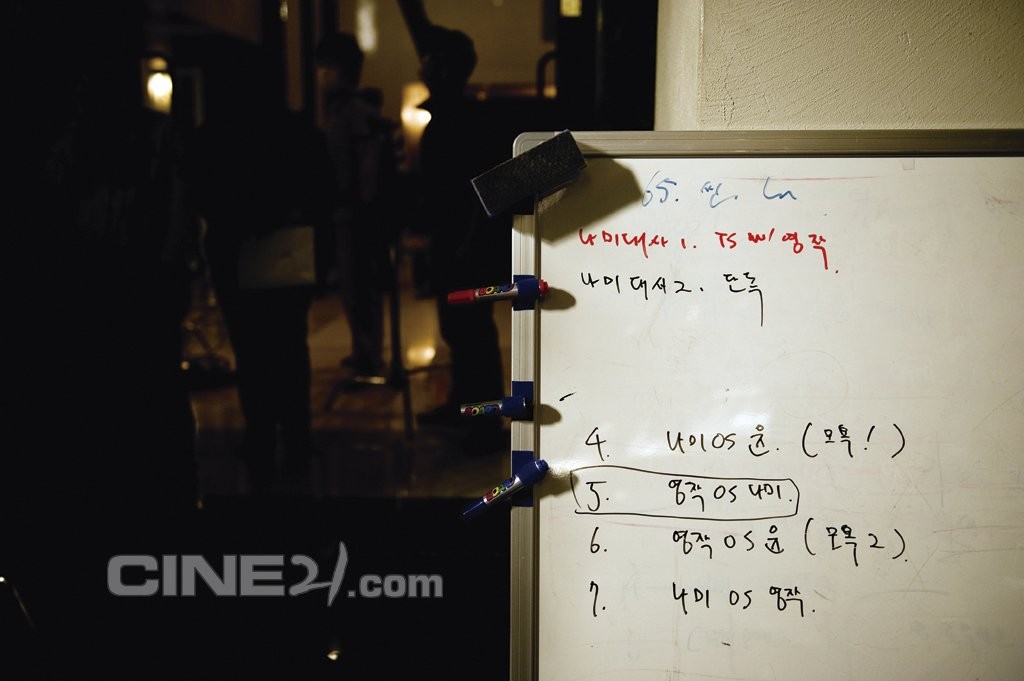 65. 씬. Ln
나미대사 1. TS w/ 영작.
나미대사 2. 단독
4. 나미 OS 윤. (모욕!)
5. 영작 OS 나미.
6. 영작 OS 윤 (모욕 2).
7. 나미 OS 영작.
CINE21.com